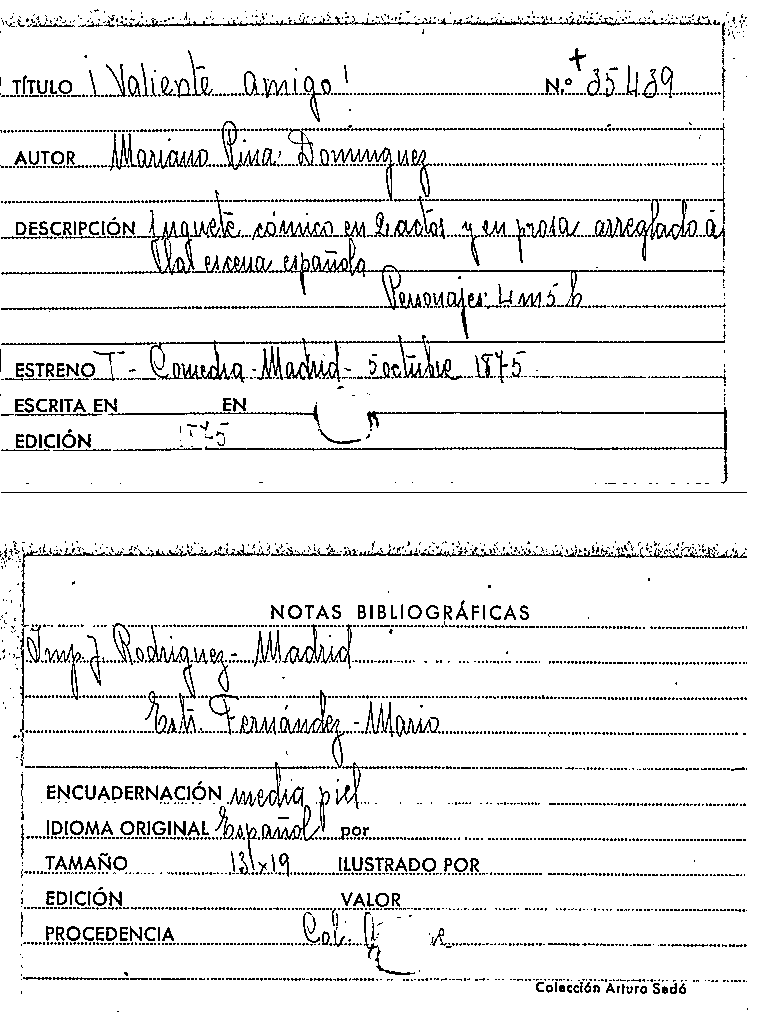 TÍTULO ¡Valiente amigo! N.º + 35439
AUTOR Mariano Pina Dominguez
DESCRIPCIÓN Juguete cómico en 2 actos y en prosa arreglado á
la escena española
Personajes: 4 m 5 h
ESTRENO T- Comedia - Madrid - 5 octubre 1875
ESCRITA EN EN
EDICIÓN 1875
NOTAS BIBLIOGRÁFICAS
Imp. J. Rodriguez - Madrid
Estr. Fernández - Mario
ENCUADERNACIÓN media piel
IDIOMA ORIGINAL Español por
TAMAÑO 13x19 ILUSTRADO POR
EDICIÓN VALOR
PROCEDENCIA Col.
Colección Arturo Sedó